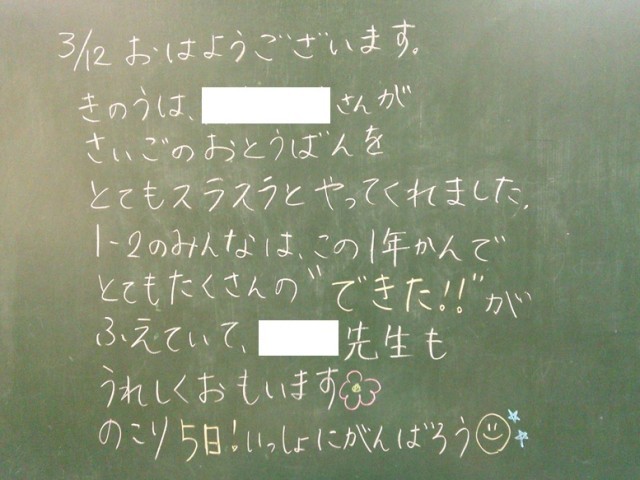 3/12 おはようございます。
きのうは、さんが
さいごのおとうばんを
とてもスラスラとやってくれました。
1-2のみんなは、この1年かんで
とてもたくさんの"できた!!"が
ふえていて、先生も
うれしくおもいます
のこり5日!いっしょにがんばろう